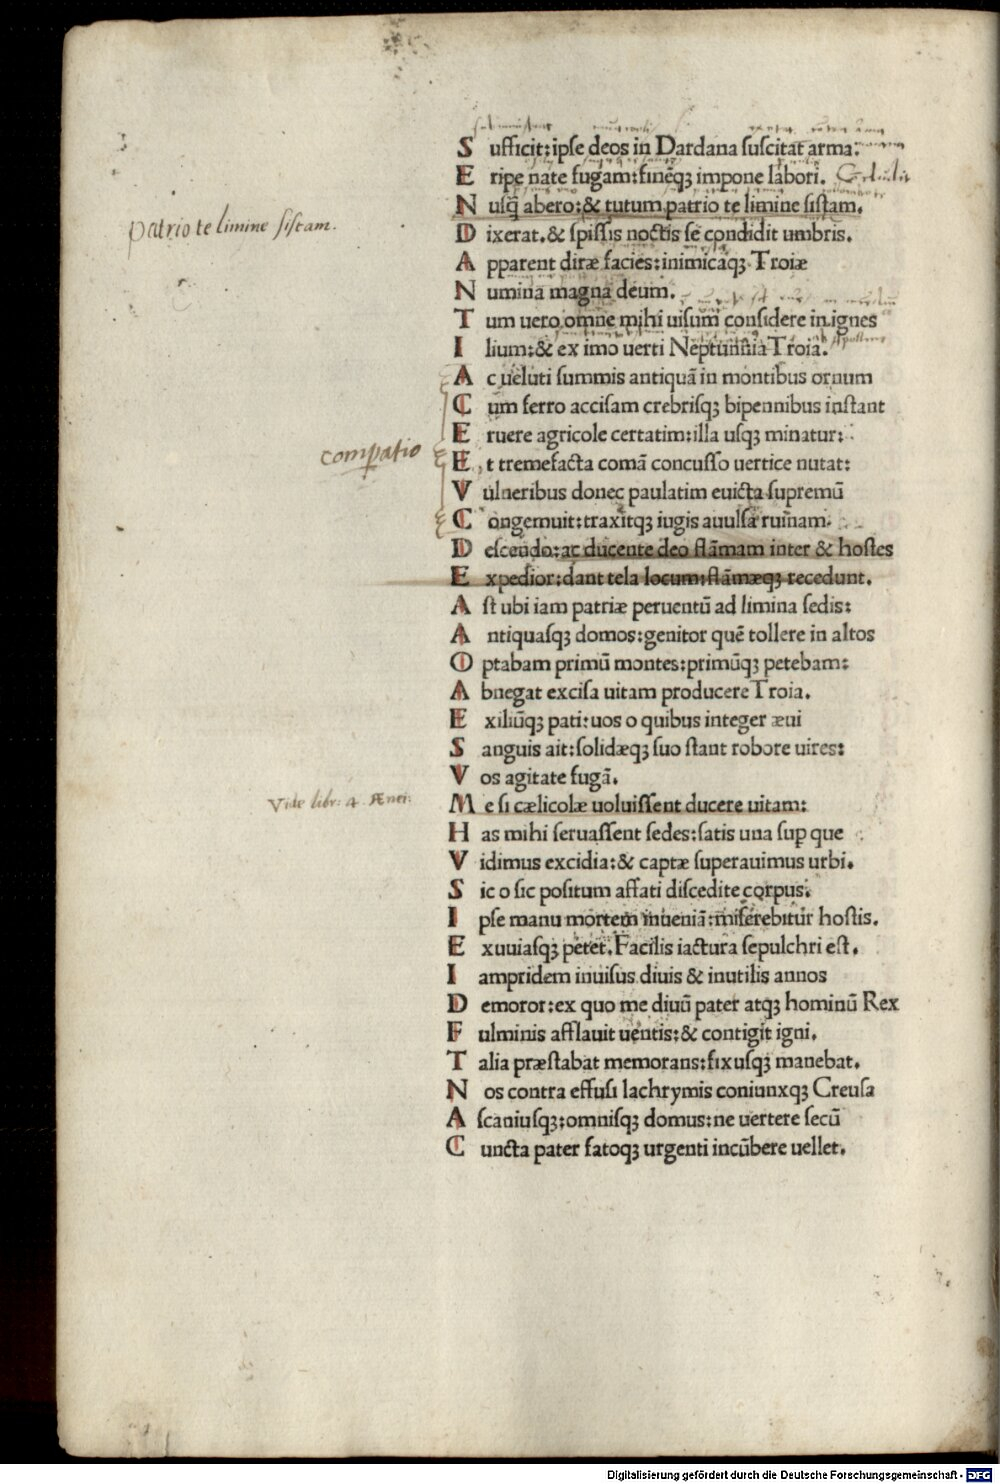 S ufficit:ipſe deos in Dardana ſuſcitat arma.
E ripe nate fugam:finēq; impone labori.
N uſq̃ abero:& tutum patrio te limine ſiſtam.
patrio te limine ſiſtam.
D ixerat.& ſpiſſis noctis ſe condidit umbris.
A pparent diræ facies:inimicaq; Troiæ
N umina magna deum.
T um uero omne mihi uiſum conſidere in ignes
I lium:& ex imo uerti Neptunnia Troia.
A c ueluti ſummis antiquā in montibus ornum
C um ferro acciſam crebriſq; bipennibus inſtant
E ruere agricole certatim:illa uſq; minatur:
compatio
E t tremefacta comā concuſſo uertice nutat:
V ulneribus donec paulatim euicta ſupremū
C ongemuit:traxitq; iugis auulſa ruinam.
D eſcendo:ac ducente deo flāmam inter & hoſtes
E xpedior:dant tela locum:flāmæq; recedunt.
A ſt ubi iam patriæ peruentū ad limina ſedis:
A ntiquaſq; domos:genitor quē tollere in altos
O ptabam primū montes:primūq; petebam:
A bnegat exciſa uitam producere Troia.
E xiliūq; pati:uos o quibus integer æui
S anguis ait:ſolidæq; ſuo ſtant robore uires:
V os agitate fugā.
Vide libr: 4 Ænei:
M e ſi cælicolæ uoluiſſent ducere uitam:
H as mihi ſeruaſſent ſedes:ſatis una sup que
V idimus excidia:& captæ ſuperauimus urbi.
S ic o ſic poſitum affati diſcedite corpus.
I pſe manu mortem inueniā:miſerebitur hoſtis.
E xuuiaſq; petet.Facilis iactura ſepulchri eſt.
I ampridem inuiſus diuis & inutilis annos
D emoror:ex quo me diuū pater atq; hominū Rex
F ulminis afflauit uentis:& contigit igni.
T alia præſtabat memorans:fixuſq; manebat.
N os contra effuſi lachrymis coniunxq; Creuſa
A ſcaniuſq;:omniſq; domus:ne uertere ſecū
C uncta pater fatoq; urgenti incūbere uellet.
Digitalisierung gefördert durch die Deutsche Forschungsgemeinschaft - DFG